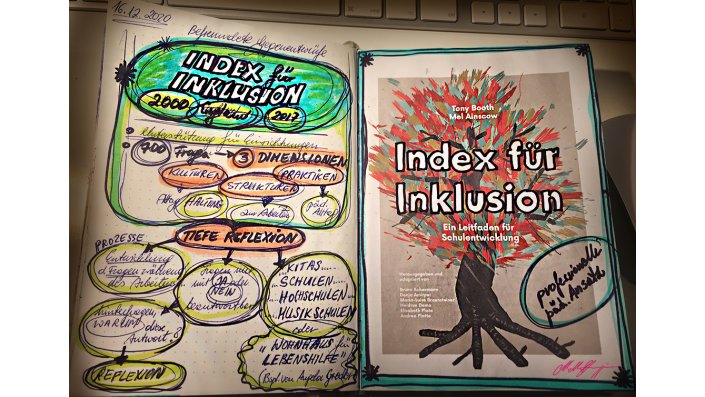 16.12.2020
INDEX für
INKLUSION
2000
2017
Unterstützung für Einrichtungen
700 Fragen 3 DIMENSIONEN
KULTUREN
PRAKTIKEN
STRUKTUREN
HALTUNG
TIEFE REFLEXION
PROZESSE
Entwicklung
d. Fragen während
des Arbeitens
Fragen nur
mit JA oder
NEIN
beantworten
hinterfragen
WARUM diese
Antwort?
REFLEXION
...KITAS....
...SCHULEN....
...HOCHSCHULEN
...MUSIKSCHULEN
oder
"WOHNHAUS für
LEBENSHILFE"
(Bspl. von Angela
Tony Booth
Mel Ainscow
Index für
Inklusion
Ein Leitfaden für
Schulentwicklung
Herausgegeben und
adaptiert von
Bruno Achermann
Donja Amirpur
Maria-Luise Braunsteiner
Heidrun Demo
Elisabeth Plate
Andrea Platte
professionelle
päd. Ansätze